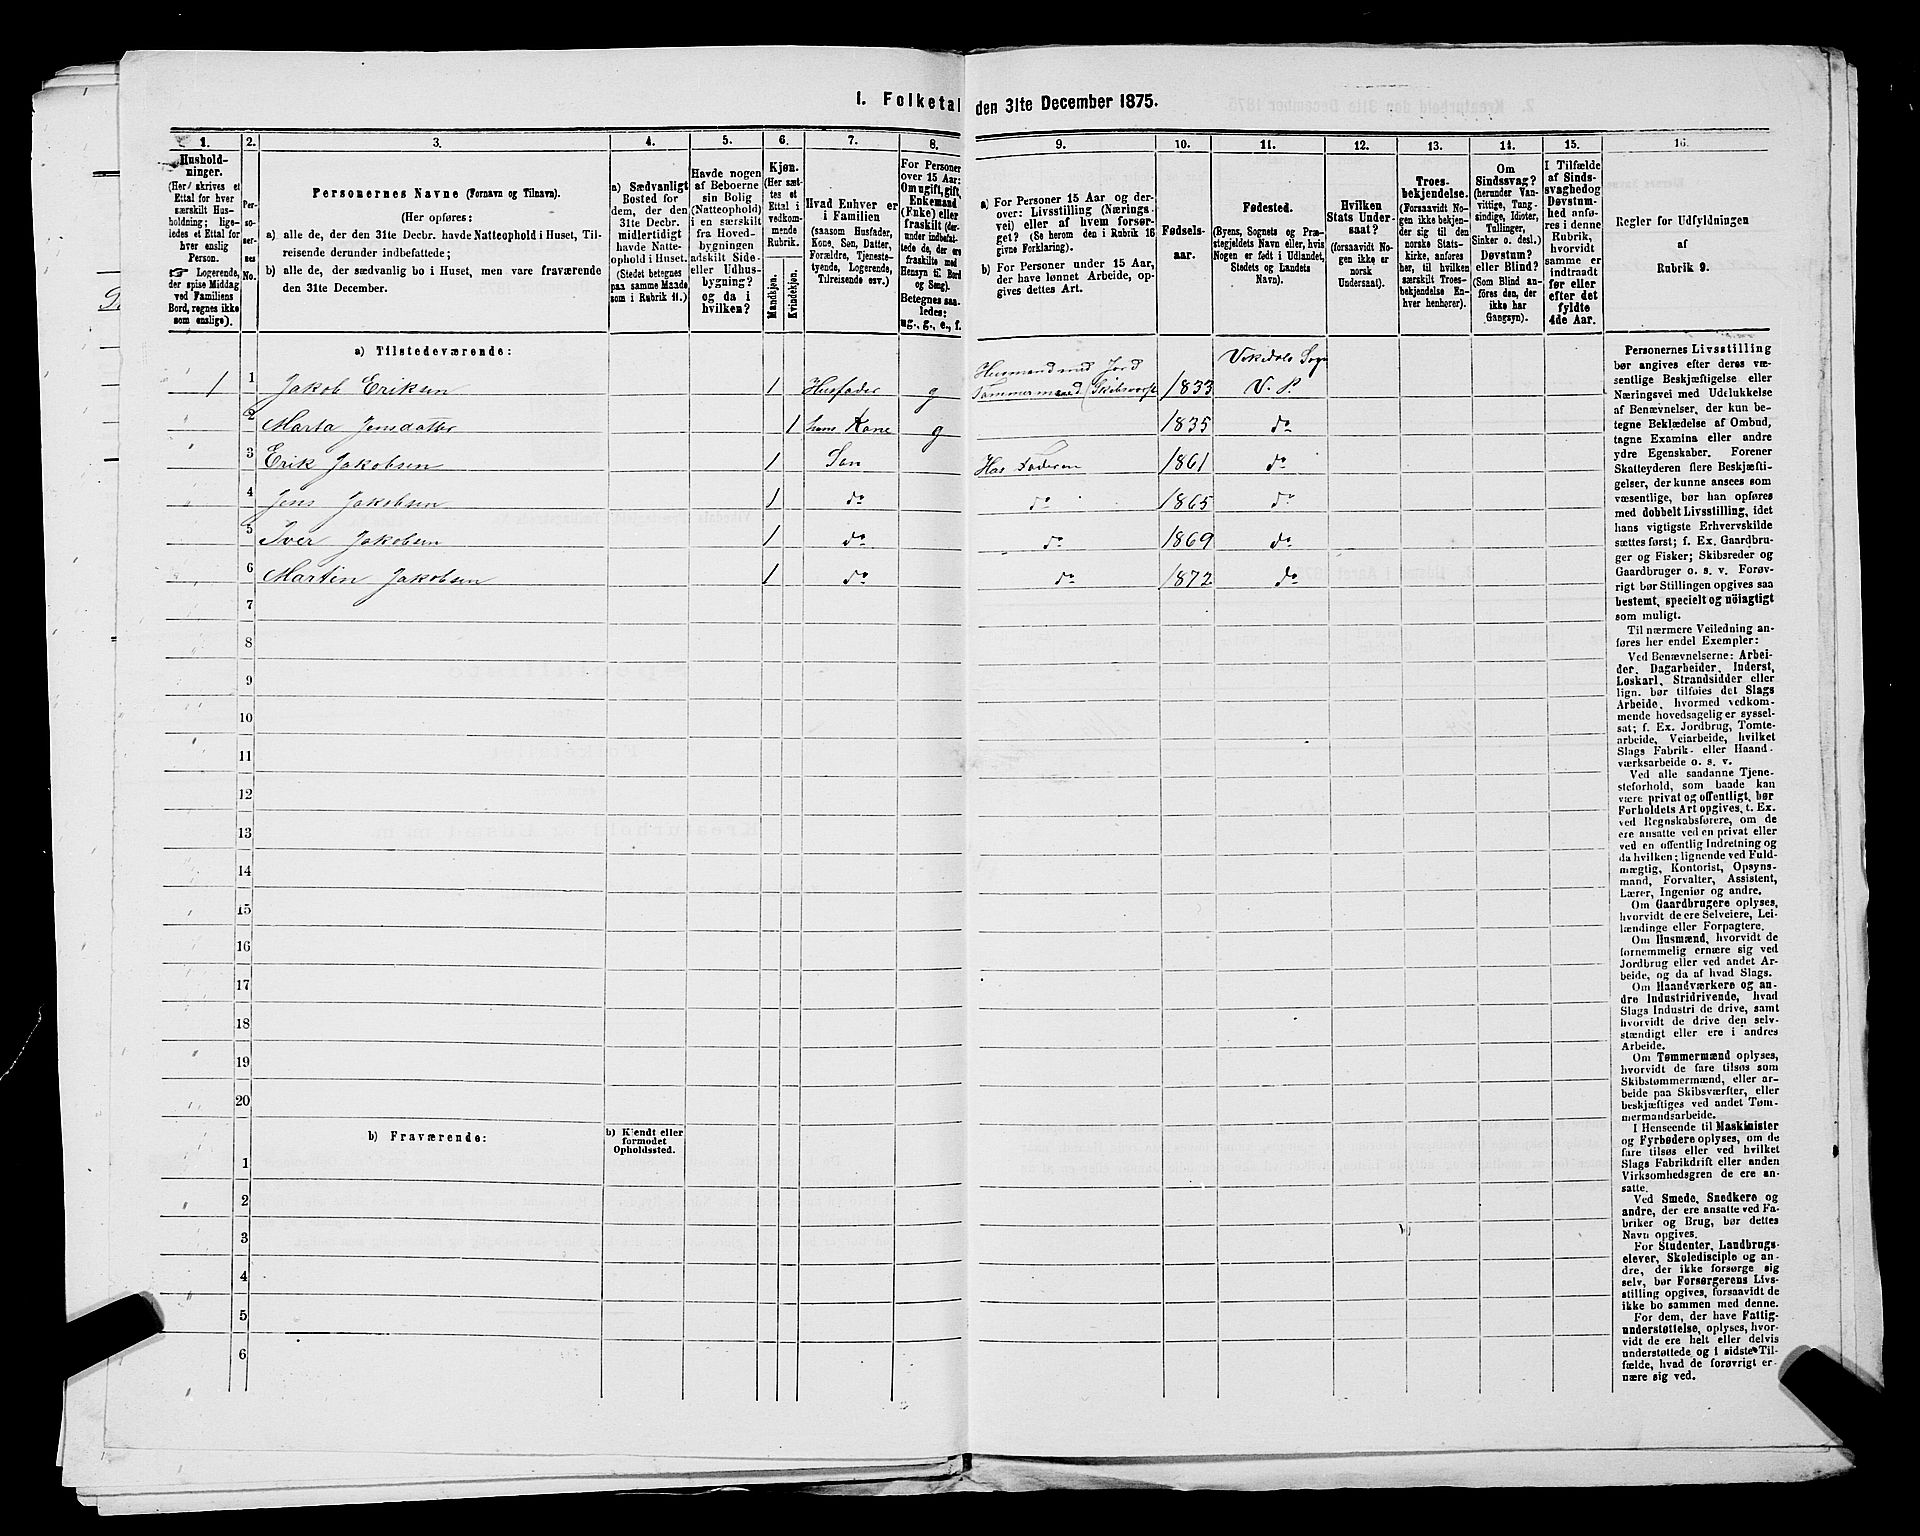 I. Folketal den 31te December 1875.
1. 2. 3. 4. 5. 6. 7. 8. 9. 10. 11. 12. 13. 14. 15. 16.
Hushold-
ninger.
(Her skrives et
Ettal for hver
særskilt Hus-
holdning; lige-
ledes et Ettal for
hver enslig
Person.
☞ Logerende,
der spise Middag
ved Familiens
Bord, regnes ikke
som enslige).
Per-
so-
ner-
nes
No.
Personernes Navne (Fornavn og Tilnavn).
(Her opføres:
a) alle de, der den 31te Decbr. havde Natteophold i Huset, Til-
reisende derunder indbefattede;
b) alle de, der sædvanlig bo i Huset, men vare fraværende
den 31te December.
a) Sædvanligt
Bosted for
dem, der den
31te Decbr.
midlertidigt
havde Natte-
ophold i Huset.
(Stedet betegnes
paa samme Maade
som i Rubrik 11.)
Havde nogen
af Beboerne
sin Bolig
(Natteophold)
i en særskilt
fra Hoved-
bygningen
adskilt Side-
eller Udhus-
bygning?
og da i
hvilken?
Kjøn.
(Her sæt-
tes et
Ettal i
vedkom-
mende
Rubrik.
Mandkjøn.
Kvindekjøn.
Hvad Enhver er
i Familien
(saasom Husfader,
Kone, Søn, Datter,
Forældre, Tjeneste-
tyende, Logerende,
Tilreisende osv.)
For Personer
over 15 Aar:
Om ugift, gift,
Enkemand
(Enke) eller
fraskilt (der-
under indbefat-
tede de, der ere
fraskilte med
Hensyn til Bord
og Seng).
Betegnes saa-
ledes:
ug., g., e., f.
a) For Personer 15 Aar og der-
over: Livsstilling (Nærings-
vei) eller af hvem forsør-
get? (Se herom den i Rubrik 16
givne Forklaring).
b) For Personer under 15 Aar,
der have lønnet Arbeide, op-
gives dettes Art.
Fødsels-
aar.
Fødested.
(Byens, Sognets og Præ-
stegjeldets Navn eller, hvis
Nogen er født i Udlandet,
Stedets og Landets
Navn).
Hvilken
Stats Under-
saat?
(forsaavidt No-
gen ikke er
norsk
Undersaat).
Troes-
bekjendelse.
(Forsaavidt No-
gen ikke bekjen-
der sig til den
norske Stats-
kirke, anføres
her, til hvilken
særskilt Troes-
bekjendelse En-
hver henhører).
Om
Sindssvag?
(herunder Van-
vittige, Tung-
sindige, Idioter,
Tullinger,
Sinker o. desl.)
Døvstum?
eller Blind?
(Som Blind an-
føres den, der
ikke har
Gangsyn).
I Tilfælde
af Sinds-
svaghed og
Døvstum-
hed anfø-
res i denne
Rubrik,
hvorvidt
samme er
indtraadt
før eller
efter det
fyldte
4de Aar.
Regler for Udfyldningen
af
Rubrik 9.
a) Tilstedeværende:
Husmand med Jord Vikedals Sogn
1 1 Jakob Eriksen 1 Husfader g Tømmermand (Skibsværft 1833 V. P.
2 Marta Jensdatter 1 hans Kone g 1835 do
3 Erik Jakobsen 1 Søn Hos Faderen 1861 do
4 Jens Jakobsen 1 do do 1865 do
5 Iver Jakobsen 1 do do 1869 do
6 Martin Jakobsen 1 do do 1872 do
7
8
9
10
11
12
13
14
15
16
17
18
19
20
b) Fraværende:
b) Kjendt eller
formodet
Opholdssted.
1
2
3
4
5
6
Personernes Livsstilling
bør angives efter deres væ-
sentlige Beskjæftigelse eller
Næringsvei med Udelukkelse
af Benævnelser, der kun be-
tegne Beklædelse af Ombud,
tagne Examina eller andre
ydre Egenskaber. Forener
Skatteyderen flere Beskjæfti-
gelser, der kunne ansees som
væsentlige, bør han opføres
med dobbelt Livsstilling, idet
hans vigtigste Erhvervskilde
sættes først; f. Ex. Gaardbru-
ger og Fisker; Skibsreder og
Gaardbruger o. s. v. Forøv-
rigt bør Stillingen opgives saa
bestemt, specielt og nöiagtigt
som muligt.
Til nærmere Veiledning an-
føres her endel Exempler:
Ved Benævnelserne: Arbei-
der, Dagarbeider, Inderst,
Løskarl, Strandsidder eller
lign. bør tilføies det Slags
Arbeide, hvormed vedkom-
mende hovedsagelig er syssel-
sat; f. Ex. Jordbrug, Tomte-
arbeide, Veiarbeide, hvilket
Slags Fabrik- eller Haand-
værksarbeide o. s. v.
Ved alle saadanne Tjene-
steforhold, som baade kan
være privat og offentligt, bør
Forholdets Art opgives, t. Ex.
ved Regnskabsførere, om de
ere ansatte ved en privat eller
ved en offentlig Indretning og
da hvilken; lignende ved Fuld-
mægtig, Kontorist, Opsyns-
mand, Forvalter, Assistent,
Lærer, Ingeniør og andre.
Om Gaardbrugere oplyses,
hvorvidt de ere Selveiere, Lei-
lændinge eller Forpagtere.
Om Husmænd, hvorvidt de
fornemmelig ernære sig ved
Jordbrug eller ved andet Ar-
beide, og da af hvad Slags.
Om Haandværkere og an-
dre Industridrivende, hvad
Slags Industri de drive, samt
hvorvidt de drive den selv-
stændigt eller ere i andres
Arbeide.
Om Tømmermænd oplyses,
hvorvidt de fare tilsøs som
Skibstømmermænd, eller ar-
beide paa Skibsværfter, eller
beskjæftiges ved andet Tøm-
mermandsarbeide.
I Henseende til Maskinister
og Fyrbødere oplyses, om de
fare tilsøs eller ved hvilket
Slags Fabrikdrift eller anden
Virksomhedsgren de ere an-
satte.
Ved Smede, Snedkere og
andre, der ere ansatte ved Fa-
briker og Brug, bør dettes
Navn opgives.
For Studenter, Landbrugs-
elever, Skoledisciple og an-
dre, der ikke forsørge sig
selv, bør Forsørgerens Livs-
stilling opgives, forsaavidt de
ikke bo sammen med denne.
For dem, der have Fattig-
understøttelse, oplyses, hvor-
vidt de ere helt eller delvis
understøttede og i sidste Til-
fælde, hvad de forøvrigt er-
nære sig ved.